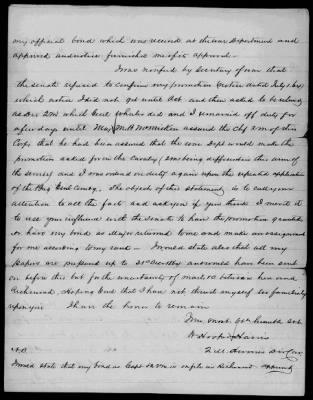 my official bond which was received at the war Department and
approved and notice furnished me of its approval.
I was notified by Secretary of war that
the Senate refused to confirm my promotion (notice dated July 1, 64)
which notice I did not get until Oct and then asked to be relieved
as Div 2M which Genl ordered and I remained off duty for
a few days until Maj M. H. assured the Chf 2m of this
Corps that he had been assured that the war Dept would make the
promotion asked for in the Cavalry (2ms being different in this arm of
the service) and I was ordered on duty again upon the repeated application
of the Brig Genl Comdg. The object of this statement is to call your
attention to all the facts and ask you if you think I merit it
to use your influence with the Senate to have the promotion granted
or have my bond as Major returned to me and make an assignment
for me according to my rank — I would state also that all my
papers are prepared up to 31st Decr by and would have been sent
on before this but for the uncertainty of mails between here and
Richmond. Hoping Genl that I have not thrust myself too familiarly
upon you I have the honor to remain
Your most Obt humble Svt
W Hooper Harris
2 M Div Cav
N.B
I would state that my bond as Capt &c is on file in Richmond